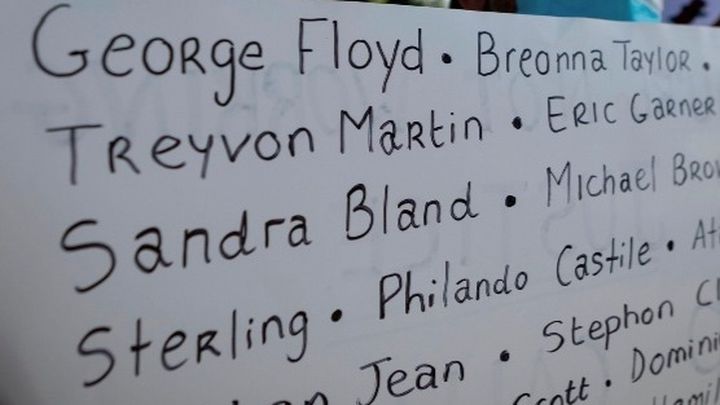 George Floyd • Breonna Taylor •
Treyvon Martin • Eric Garner
Sandra Bland • Michael
Sterling • Philando Castile •
Jean • Stephon
• Domini